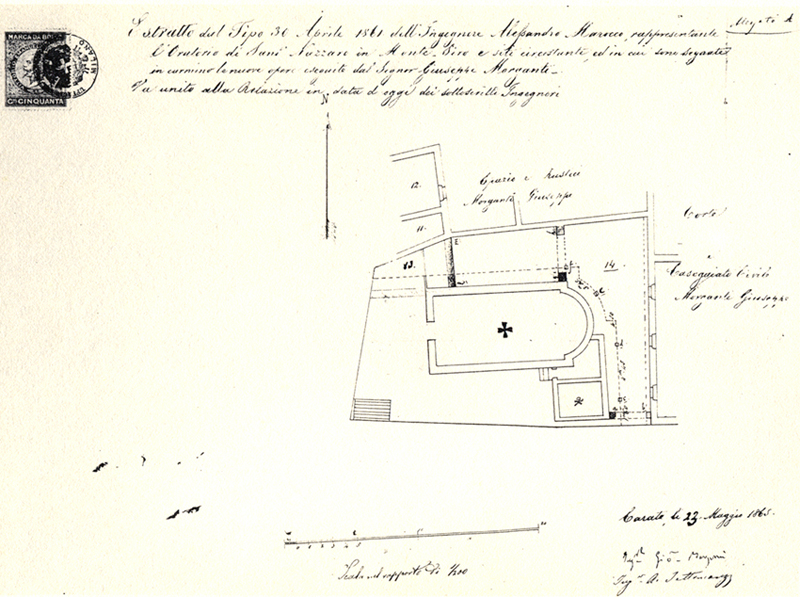 Estratto del Tipo 30 Aprile 1861 dell'Ingegnere Alessandro Marocco, rappresentante
l'Oratorio di Santi Nazzaro in Monte Siro e siti circostanti, ed in cui sono segnate
in carmino le nuove opere eseguite dal Signor Giuseppe Morganti
Va unito alla Relazione in data d'oggi dei sottoscritti Ingegneri
MARCA DA BOLLO
CMI CINQUANTA
MILANO
N
12.
Spazio e Rustici
Morganti Giuseppe
11.
E
Corte
13.
14
Caseggiato Civile
Morganti Giuseppe
Scala nel rapporto di
Carate, li 23 Maggio
Ing.r
Ing.r A.